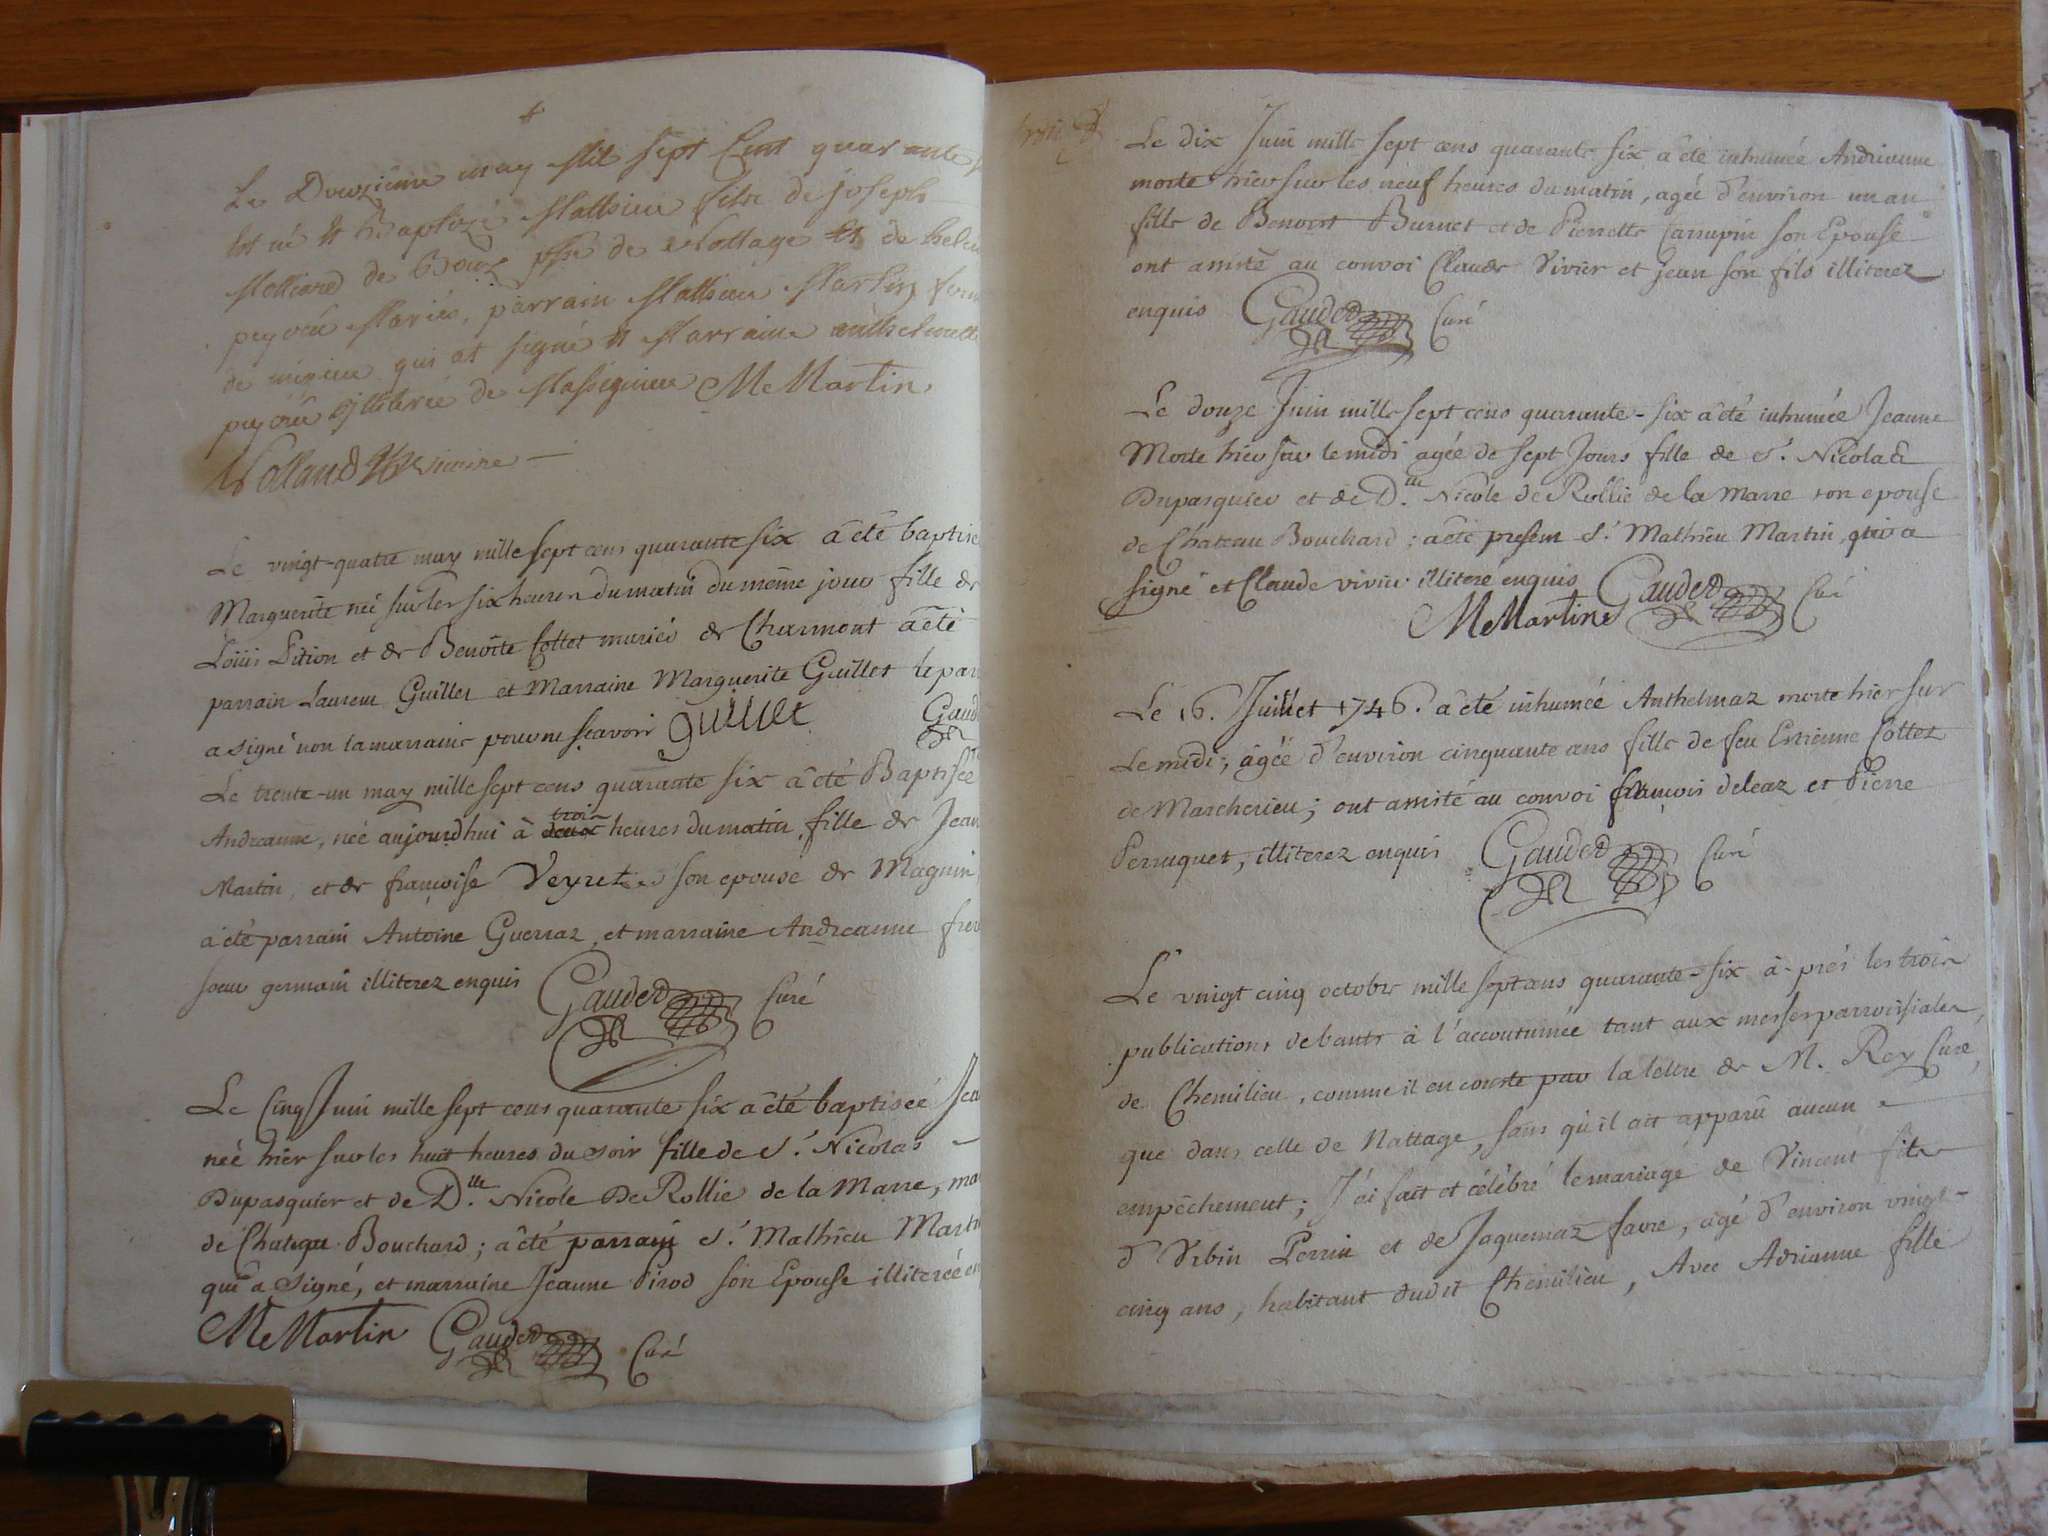 Le Douzieme may Mil sept Cent quarante
est né et Baptizé Mathieu fils de joseph
de Bons psse de Nattage et de
peysou Mariés, parrain Mathieu Martin
de qui at signé et Marraine
illiterée de Massignieu MeMartin
Rolland vicaire
Le vingt-quatre may mille sept cens quarante six a été baptisé
Marguerite neé sur les six heures du matin du même jour fille de
Loüis Pition et de Benoite Collet mariés de Charmont a été
parrain Laurent Guillet et Marraine Marguerite Guillet le par
a signé non la marraine pour ne sçavoir guillet Gaud
Le trente-un may mille sept cens quarante six a été Baptisée
Andreanne, née aujourdhui à deux trois heures du matin fille de Jean
Martin, et de françoise Veyret son epouse de Magnin
a été parrain Antoine Guerraz, et marraine Andreanne
soeur germain illiterez enquis Gauded Curé
Le Cinq Juin mille sept cens quarante six a été baptiseé Jea
née hier sur les huit heures du soir fille de S.r Nicolas
Dupasquier et de D.lle Nicole De Rollie de la Marre, ma
de Chateau Bouchard; a été parrain S.r Mathieu Martin
qui a signé, et marraine Jeanne Pirod son Epouse illiterée en
MeMartin Gauded Curé
Le dix Juin mille sept cens quarante six a été inhumée Andrianne
morte hier sur les neuf heures du matin, agée d'environ un an
fille de Benoist Burnet et de Pierrette Carrupin son Epouse
ont assisté au convoi Claude Vivier et jean son fils illiterez
enquis Gauded Curé
Le douze Juin mille sept cens quarante-six a été inhumée Jeanne
Morte hier sur le midi agée de sept Jours fille de S.r Nicolas
Dupasquier et de D.lle Nicole de Rollie de la Marre son epouse
de Château Bouchard; a été présent S.r Mathieu Martin, qui a
signé et Claude vivier illiteré enquis Gauded Curé
MeMartin
Le 16. Juillet 1746. a été inhumée Anthelmaz morte hier sur
Le midi; âgée d'environ cinquante ans fille de feu Estienne Collet
de Marcherieu; ont assisté au convoi françois deleaz et Pierre
Perruquet, illiterez enquis Gauded Curé
Le vingt cinq octobre mille sept cens quarante-six à-près les trois
publications de bants à l'accoutumée tant aux messes parroissiales
de Chemilieu, comme il en conste par la lettre de M. Rey Curé,
que dans celle de Nattage, sans qu'il ait apparû aucun
empêchement; J'ai fait et célébré le mariage de Vincent fils
d'Urbin Perrin et de Jaquemaz favre, agé d'environ vingt-
cinq ans, habitant dudit Chemilieu, Avec Adrianne fille